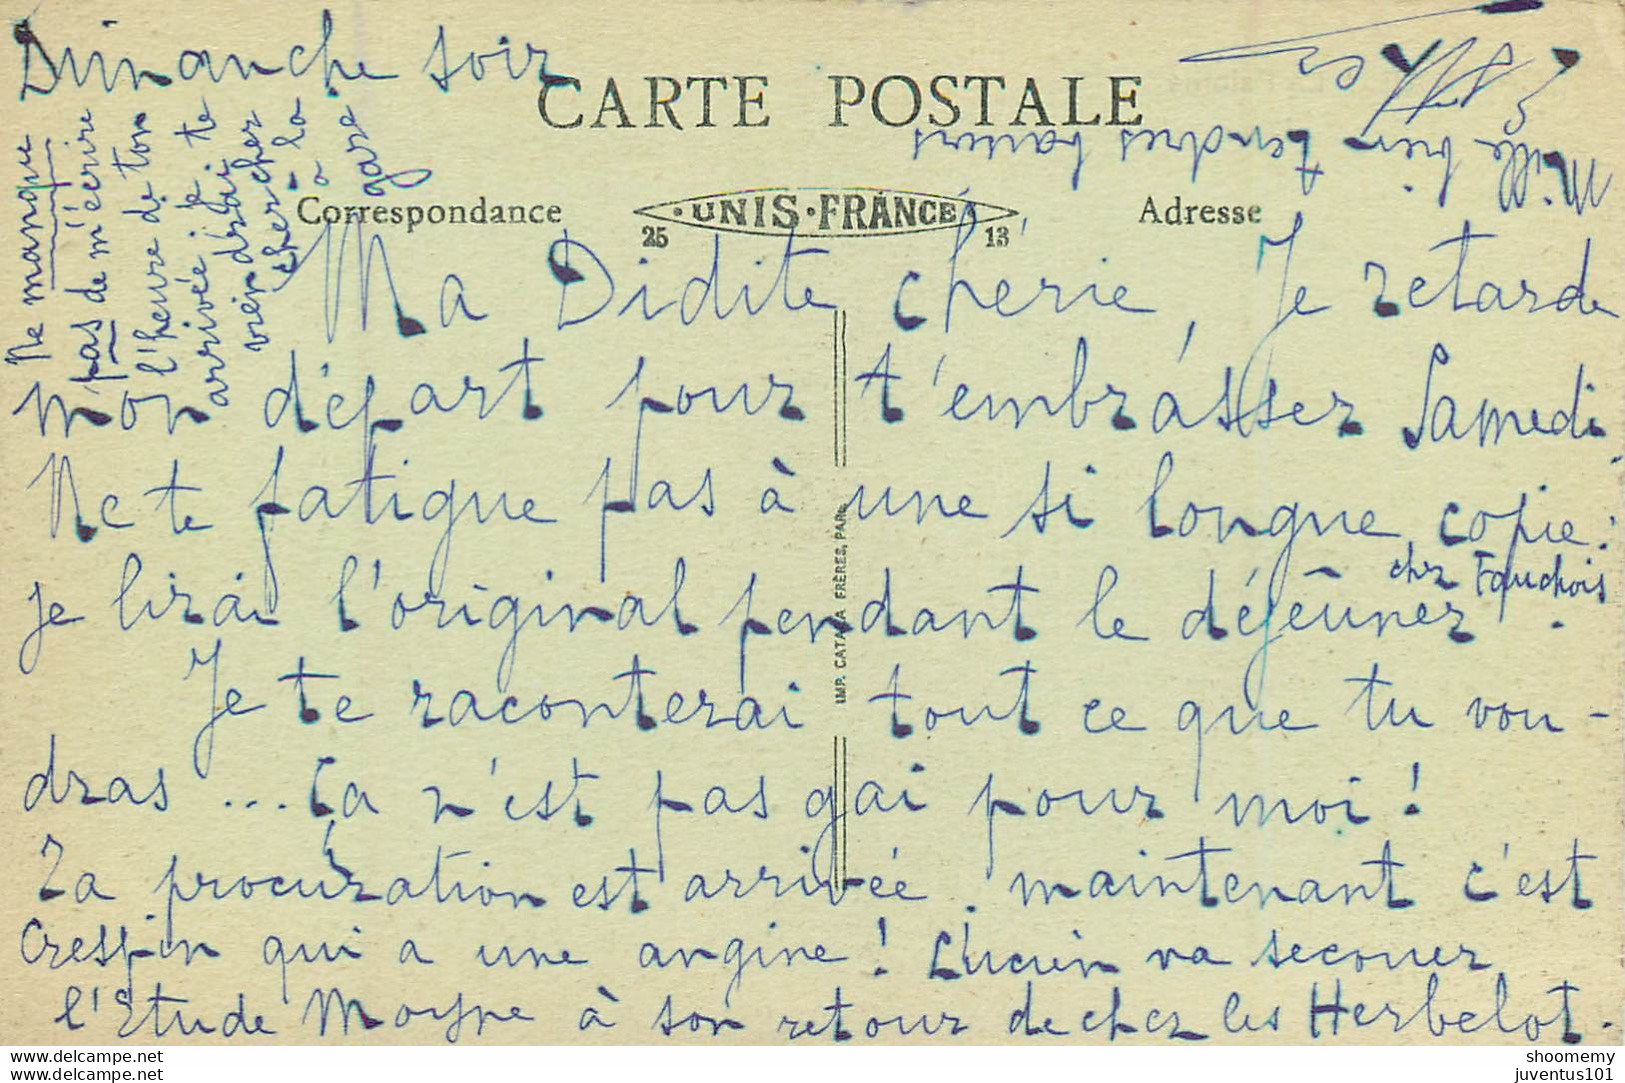 Dimanche soir
CARTE POSTALE
Correspondance
UNIS-FRANCE
25 13
Adresse
Ma Didite chérie, Je retarde
mon départ pour t'embrasser Samedi.
Ne te fatigue pas à une si longue copie :
je lirai l'original pendant le déjeûner chez Fauchois.
Je te raconterai tout ce que tu vou-
dras ... Ça n'est pas gai pour moi !
La procuration est arrivée. maintenant c'est
Crespin qui a une angine ! Lucien va secouer
l'Etude Moyne à son retour de chez les Herbelot.
Ne manque
pas de m'écrire
l'heure de ton
arrivée je te
viendrai
chercher
à la
gare
Mille bien tendres baisers
IMP. CATALA FRÈRES, PARIS
www.delcampe.net
www.delcampe.net
shoomemy
juventus101